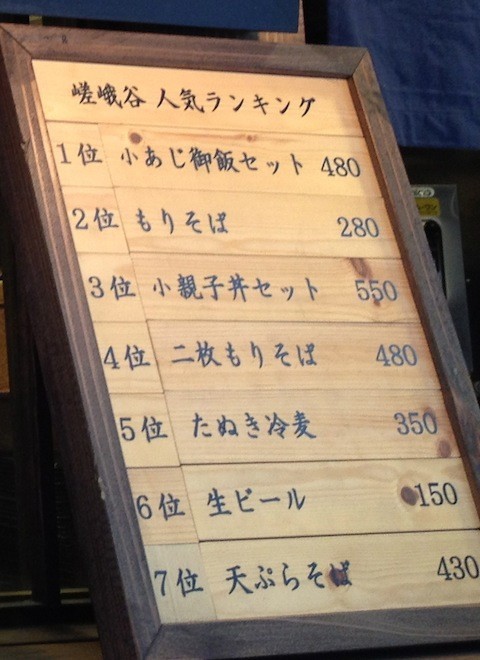 嵯峨谷 人気ランキング
1位 小あじ御飯セット 480
2位 もりそば 280
3位 小親子丼セット 550
4位 二枚もりそば 480
5位 たぬき冷麦 350
6位 生ビール 150
7位 天ぷらそば 430